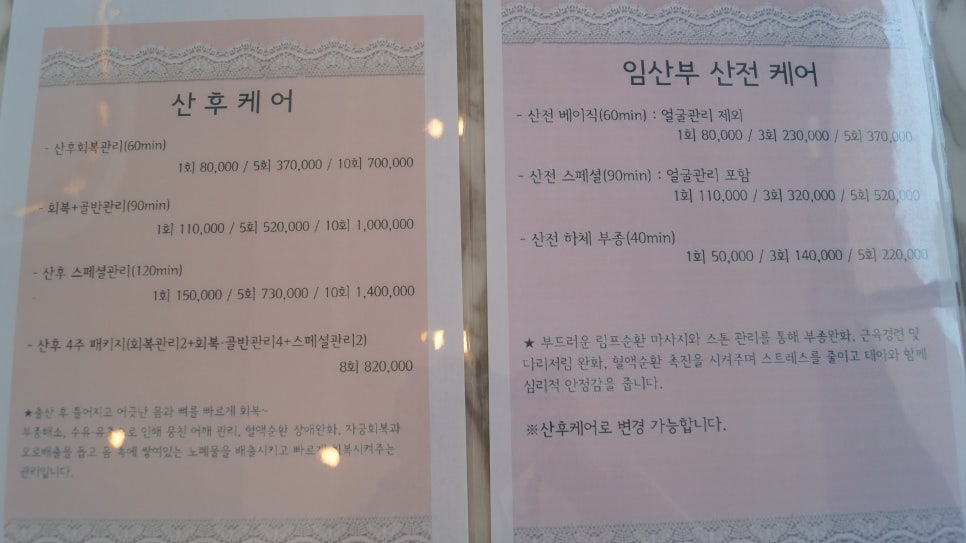 산후케어
- 산후회복관리(60min)
1회 80,000 / 5회 370,000 / 10회 700,000
- 회복+골반관리(90min)
1회 110,000 / 5회 520,000 / 10회 1,000,000
- 산후 스페셜관리(120min)
1회 150,000 / 5회 730,000 / 10회 1,400,000
- 산후 4주 패키지(회복관리2+회복·골반관리4+스페셜관리2)
8회 820,000
★출산 후 틀어지고 어긋난 몸과 뼈를 빠르게 회복~
부종해소, 수유 인해 뭉친 어깨 관리, 혈액순환 장애완화, 자궁회복과
오로배출을 돕고 몸 속에 쌓여있는 노폐물을 배출시키고 빠르게 회복시켜주는
관리입니다.
임산부 산전 케어
- 산전 베이직(60min) : 얼굴관리 제외
1회 80,000 / 3회 230,000 / 5회 370,000
- 산전 스페셜(90min) : 얼굴관리 포함
1회 110,000 / 3회 320,000 / 5회 520,000
- 산전 하체 부종(40min)
1회 50,000 / 3회 140,000 / 5회 220,000
★ 부드러운 림프순환 마사지와 스톤 관리를 통해 부종완화, 근육경련 및
다리저림 완화, 혈액순환 촉진을 시켜주며 스트레스를 줄이고 태아와 함께
심리적 안정감을 줍니다.
※산후케어로 변경 가능합니다.